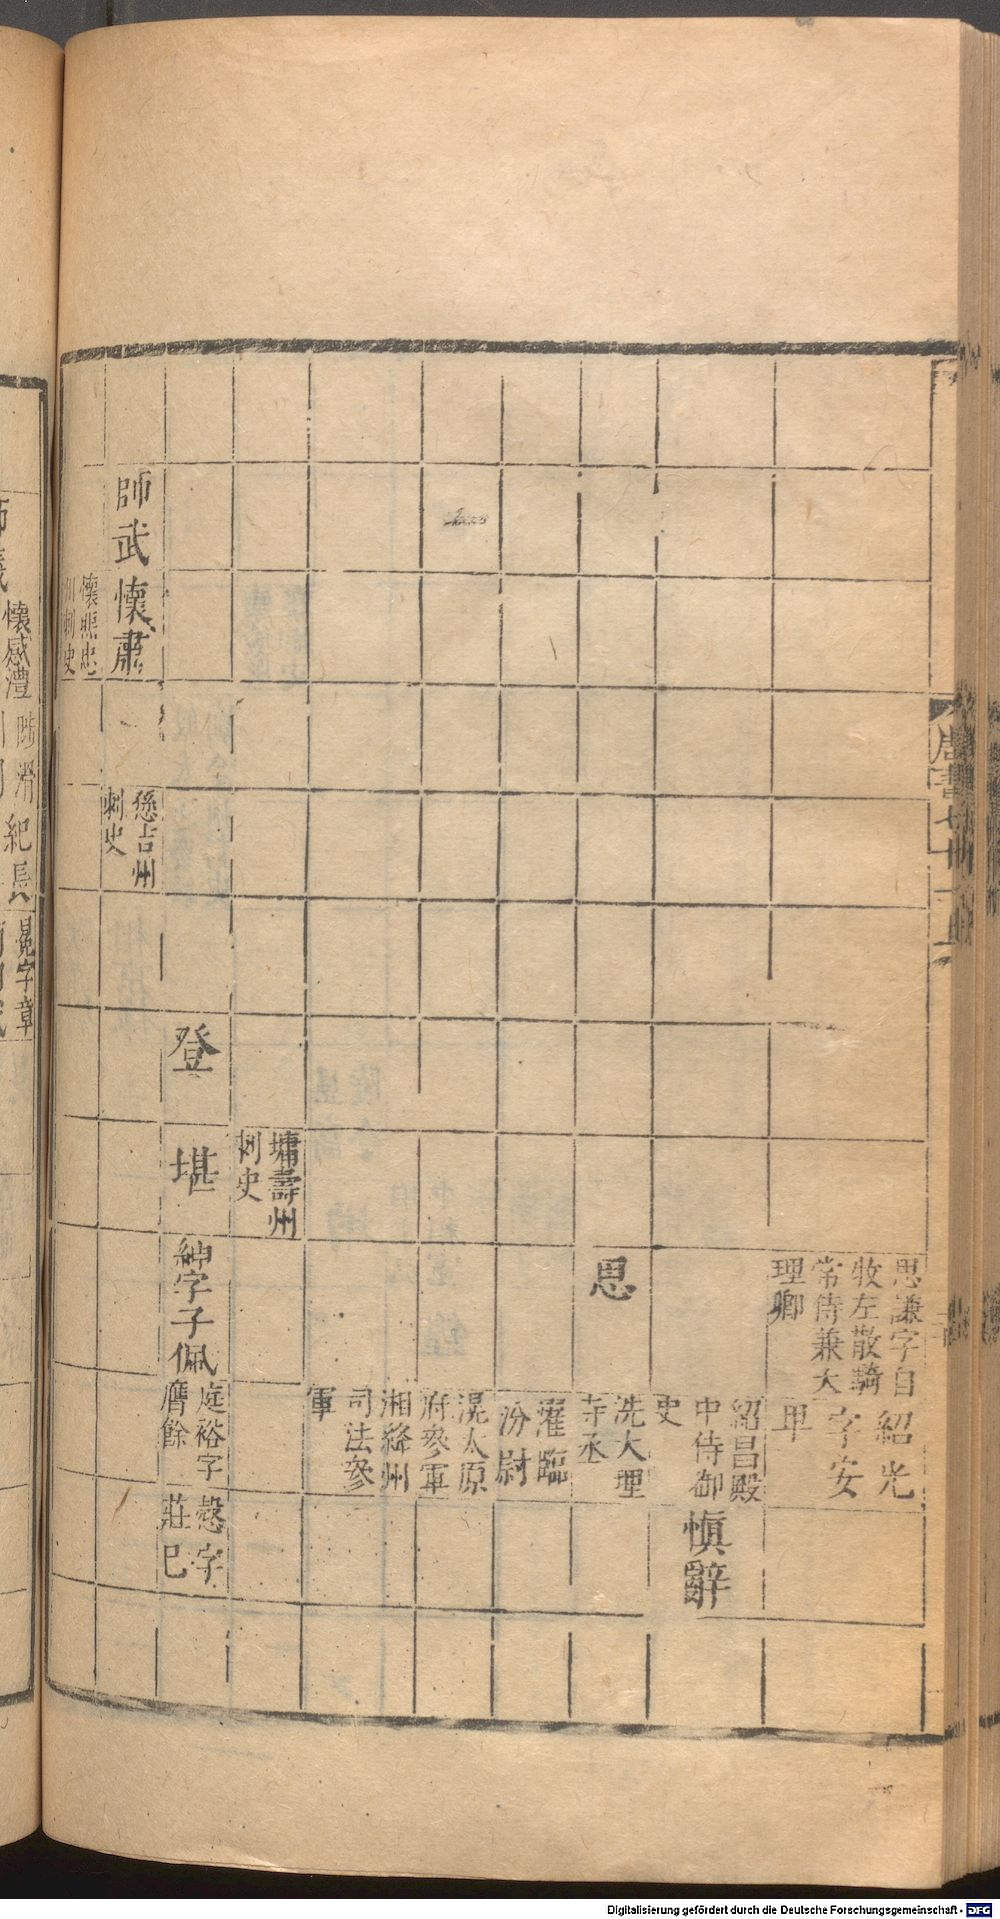 思謙字自
牧左散騎
常侍兼大
理卿
紹光
字安
卑
紹昌殿
中侍御
史
慎辭
思
洗大理
寺丞
濯臨
汾尉
滉太原
府參軍
湘絳州
司法參
軍
墉壽州
刺史
登
堪
紳字子佩
庭裕字
膺餘
愨字
莊己
師武
懷肅
懸吉州
刺史
懷照忠
州刺史
唐書七十
懷感澧
紀長
晁字章
Digitalisierung gefördert durch die Deutsche Forschungsgemeinschaft - DFG